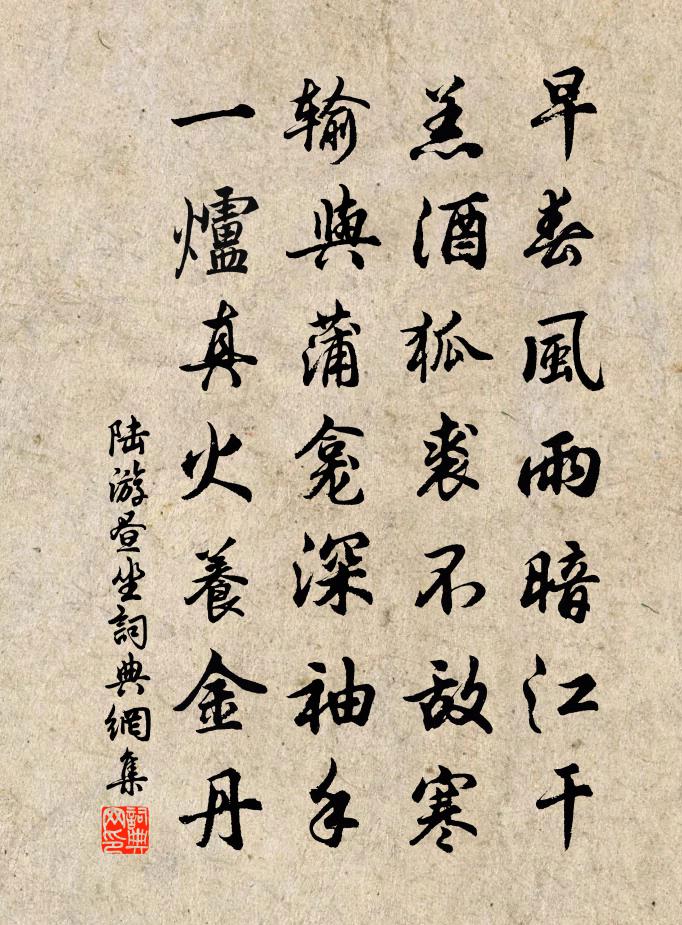 早春風雨暗江干
羔酒狐裘不敵寒
輸與蒲龕深袖手
一爐真火養金丹
陸游晝坐詞典網集
詞典网印